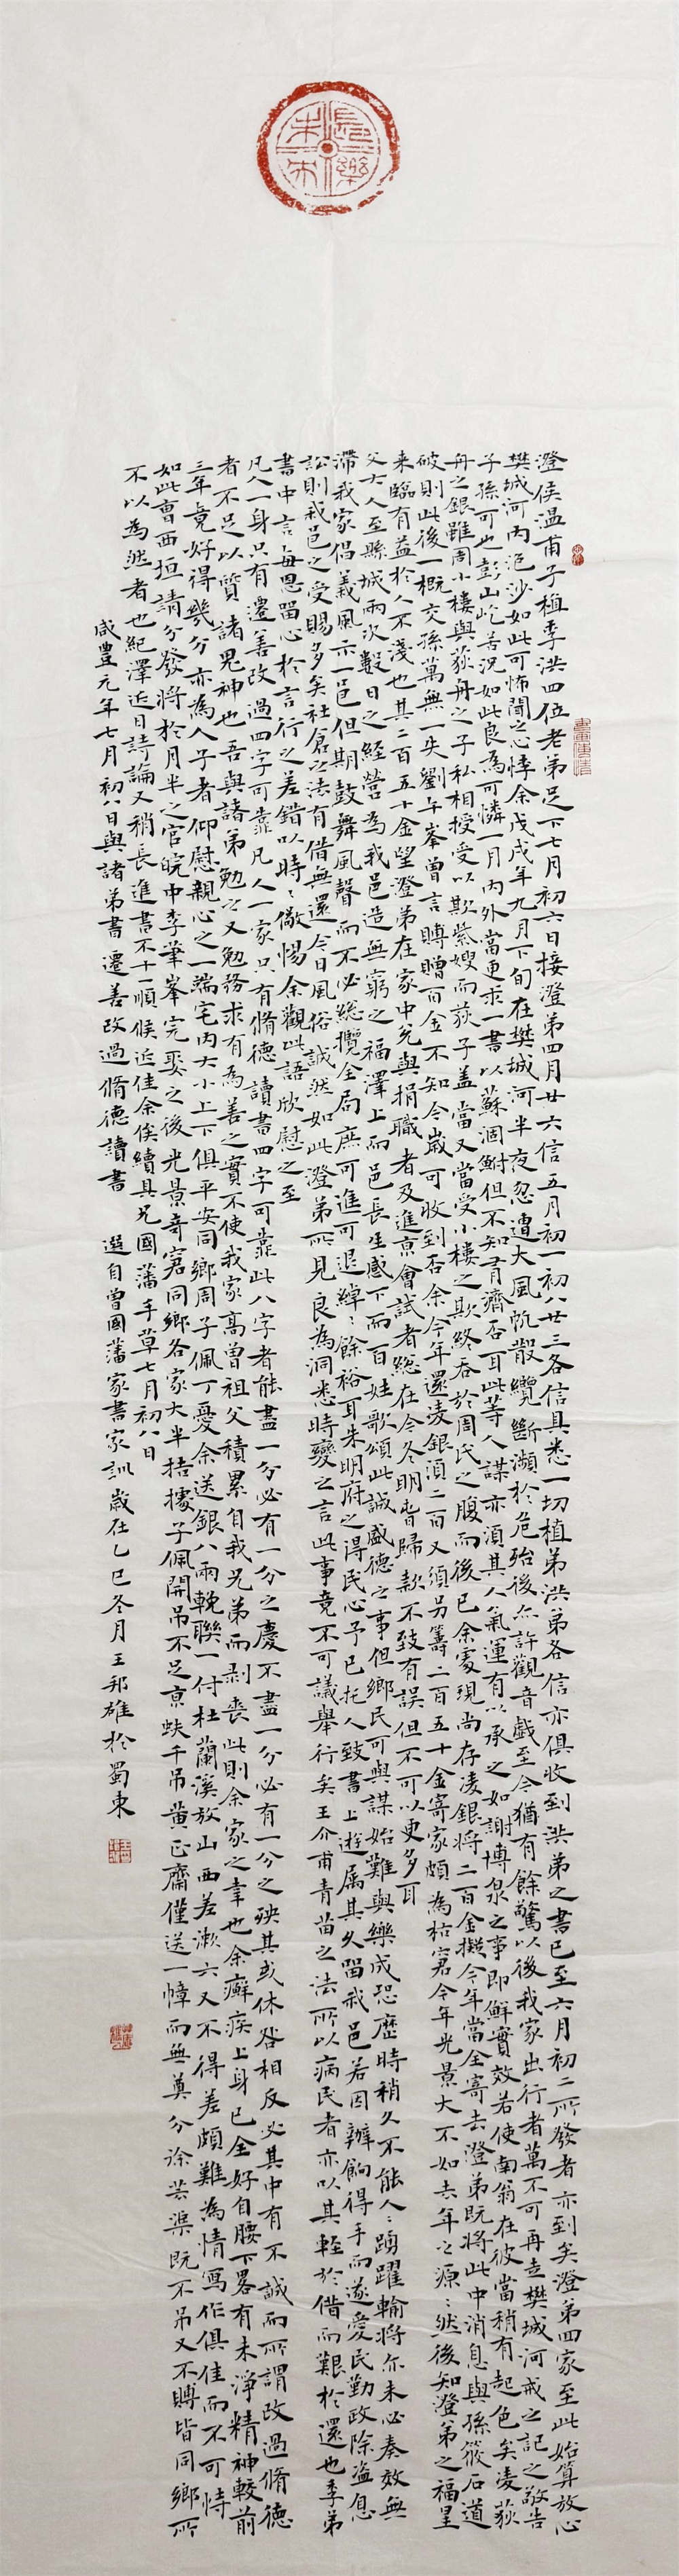 長樂未央
澄侯溫甫子植季洪四位老弟足下七月初六日接澄弟四月廿六信五月初一初八廿三各信具悉一切植弟洪弟各信亦俱收到洪弟之書已至六月初二所發者亦到矣澄弟四家至此始算放心
樊城河內泡沙如此可怖聞之心悸余戊戌年九月下旬在樊城河半夜忽遭大風帆散纜斷瀕於危殆後亦許觀音戲至今猶有餘驚以後我家出行者萬不可再走樊城河戒之記之敬告
子孫可也彭山屺苦況如此良為可憐一月內外當更求一書以蘇涸鮒但不知有濟否耳此等人謀亦須其人氣運有以承之如謝博泉之事即鮮實效若使南翁在彼當稍有起色矣凌荻
舟之銀雖周小樓與荻舟之子私相授受以欺紫嫂而荻子蓋當又當受小樓之欺終吞於周氏之腹而後已余處現尚存凌銀將二百金擬今年當全寄去澄弟既將此中消息與孫筱石道
破則此後一概交孫萬無一失劉午峯曾言賻贈百金不知今歲可收到否余今年還凌銀須二百又須另籌二百五十金寄家頗為枯窘今年光景大不如去年之源〻然後知澄弟之福星
来臨有益於人不淺也其二百五十金望澄弟在家中兌與捐職者及進京會試者總在今冬明春歸款不致有誤但不可以更多耳
父大人至縣城兩次數日之經營為我邑造無窮之福澤上而邑長生感下而百姓歌頌此誠盛德之事但鄉民可與謀始難與樂成恐歷時稍久不能人〻踴躍輸將亦未必奏效無
滯我家倡義風示一邑但期鼓舞風聲而不必總攬全局庶可進可退綽〻餘裕耳朱明府之得民心予已托人致書上游屬其久留我邑若因辦餉得手而遂愛民勤政除盜息
訟則我邑之受賜多矣社倉之法有借無還今日風俗誠然如此澄弟所見良為洞悉時變之言此事竟不可議舉行矣王介甫青苗之法所以病民者亦以其輕於借而艱於還也季弟
書中言每思留心於言行之差錯以時〻儆惕余觀此語欣慰之至
凡人一身只有遷善改過四字可靠凡人一家只有脩德讀書四字可靠此八字者能盡一分必有一分之慶不盡一分必有一分之殃其或休咎相反必其中有不誠而所謂改過脩德
者不足以質諸鬼神也吾與諸弟勉之又勉務求有為善之實不使我家高曾祖父積累自我兄弟而剥喪此則余家之幸也余癬疾上身已全好自腰下畧有未淨精神較前
三年竟好得幾分亦為人子者仰慰親心之一端宅內大小上下俱平安同鄉周子佩丁憂余送銀八兩輓聯一付杜蘭溪放山西差漱六又不得差頗難為情寫作俱佳而不可恃
如此曹西垣請分發將於月半之官皖中李筆峯完娶之後光景奇窘同鄉各家大半拮據子佩開吊不足京蚨千吊黃正齋僅送一幛而無奠分徐芸渠既不吊又不賻皆同鄉所
不以為然者也紀澤近日詩論又稍長進書不十一順候近佳余俟續具兄國藩手草七月初八日
咸豐元年七月初八日與諸弟書遷善改過脩德讀書 選自曾國藩家書家訓歲在乙巳冬月王邦雄於蜀東